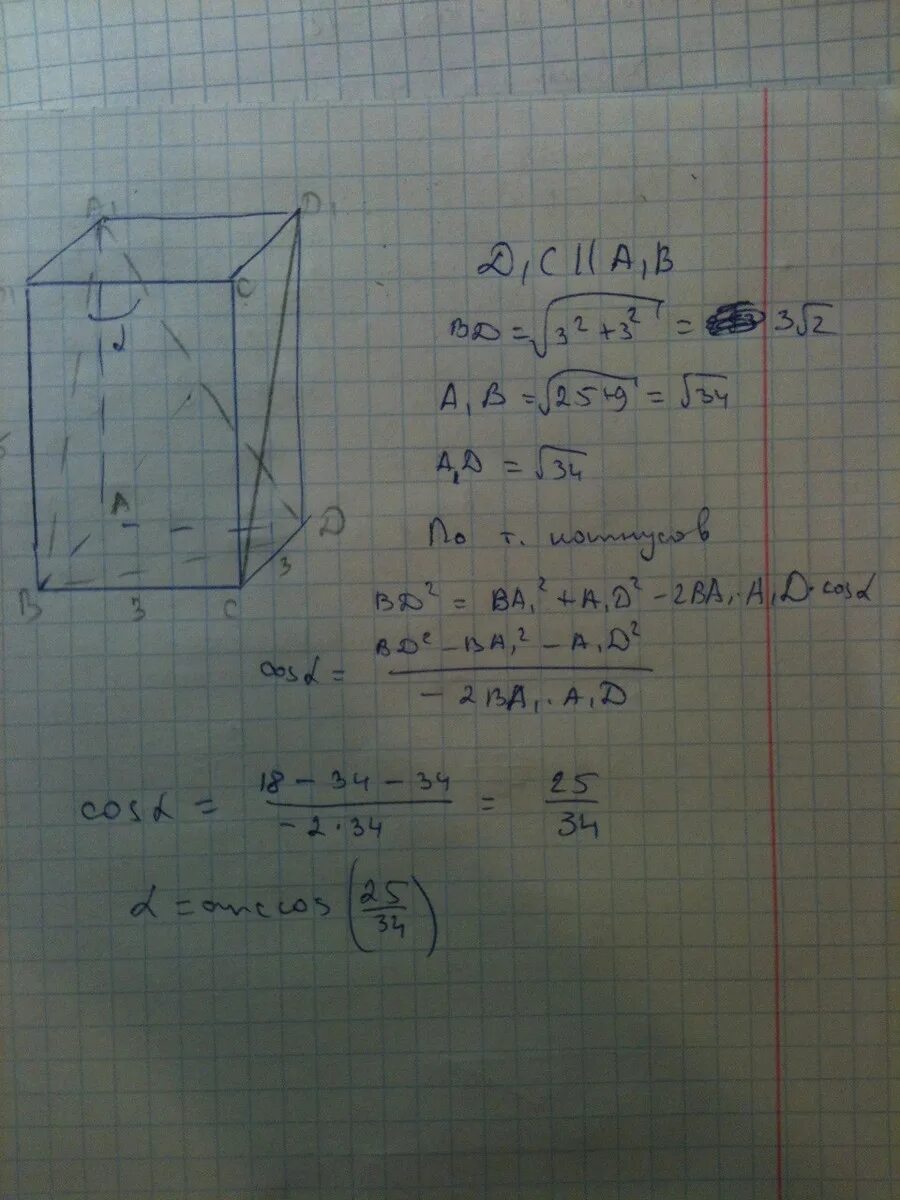 A₁ D₁
C
α
5
A
D
3
B 3 C
D₁C || A₁B
BD = √(3² + 3²) = 3√2
A₁B = √(25+9) = √34
A₁D = √34
По т. косинусов
BD² = BA₁² + A₁D² - 2BA₁ · A₁D · cosα
cosα = (BD² - BA₁² - A₁D²) / (- 2BA₁ · A₁D)
cosα = (18 - 34 - 34) / (-2 · 34) = 25/34
α = arccos (25/34)